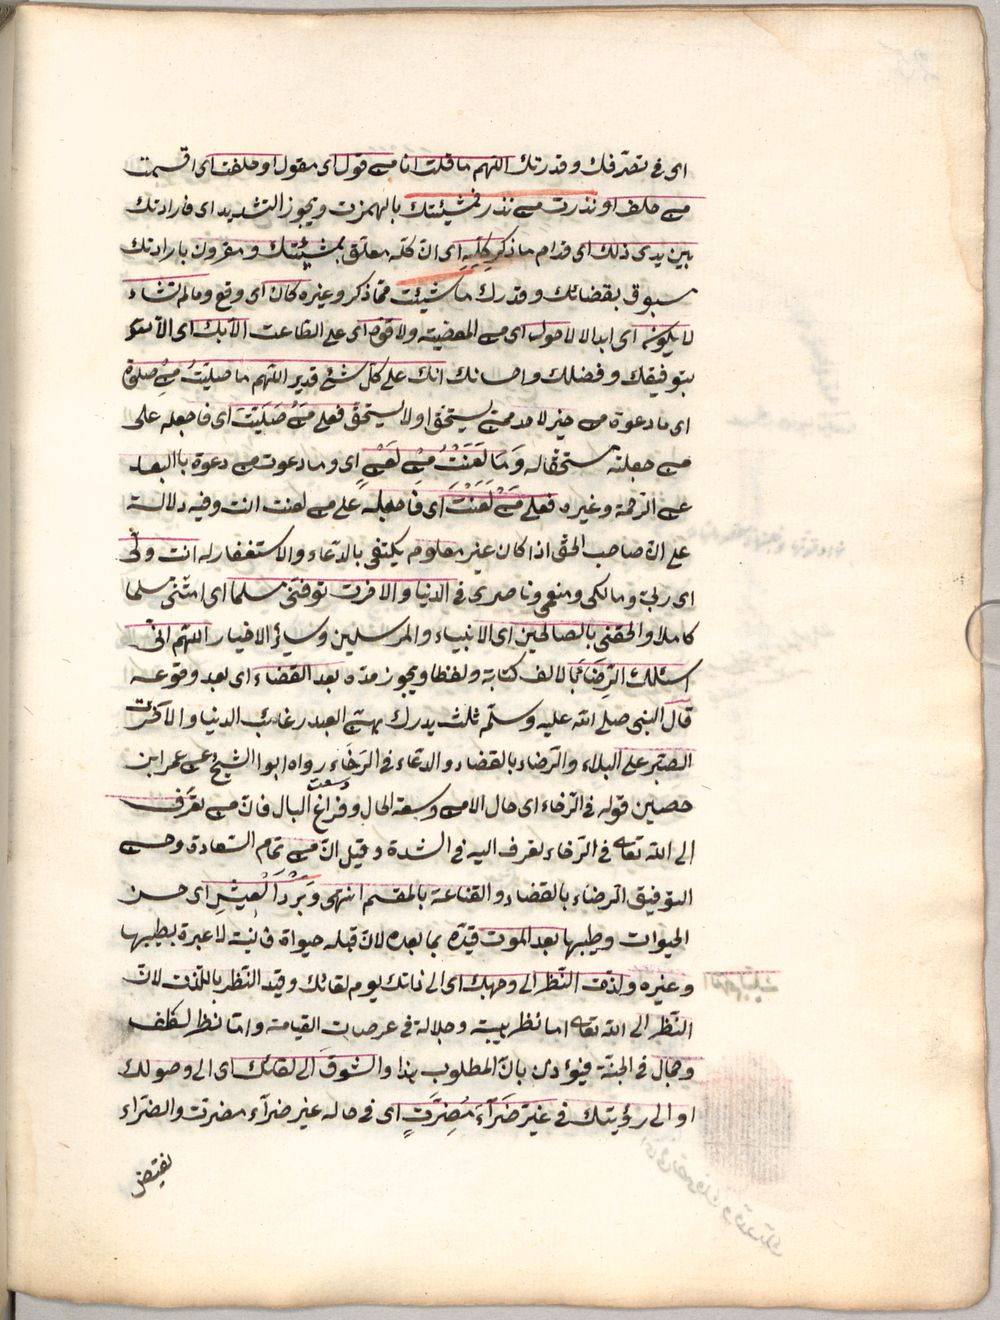 اى فى تصرّفك وقدرتك اللهم ما قلت انا من قول اى مقول او حلفت اى اقسمت
من حلف او نذرت من نذر فمشيئتك بالهمزت ويجوز التشديد اى فارادتك
بين يدى ذلك اى قدام ما ذكر كلّه اى انّ كلّه معلّق بمشيئتك ومقرون بارادتك
مسبوق بقضائك وقدرك ما شيئت ممّا ذكر وغيره كان اى وقع وما لم تشاء
لا يكون اى ابدا لا لا حول اى من المعصية ولا قوّة اى على الطاعت الا بك اى الا
بتوفيقك وفضلك واحسانك انك على كلّ شئ قدير اللهم ما صليتُ مِنْ صلوة
اى ما دعوة من خير لاحد ممن يستحق او لا يستحقّ فعلى مَنْ صَلَيَتَ اى فاجعله على
من جعلته مستحقّا له وَمَا لَعَنْتُ مِنْ لَعْنٍ اى وما دعوت من دعوة باالبعد
عن الرحمة وغيره فعلى مَنْ لَعَنْتَ اى فاجعله على من لعنت انت وفيه دلالت
على انّ صاحب الحقّ اذا كان غير معلوم يكتفى بالدّعاء والاستغفار له انت ولىّ
اى ربىّ ومالكى ومنعمى وناصرى فى الدنيا والاخرت توفّنى مسلما اى امتنى مسلما
كاملا والحقنى بالصالحين اى الانبياء والمرسلين وسائر الاخيار اللهم انّى
اسئلك الرِّضَا بالالف كتابة ولفظا ويجوز مدّه بعد القضاء اى بعد وقوعه
قال النبى صلى الله عليه وسلّم ثلث يدرك بهنّ العبد رغائب الدنيا والآخرت
الصبر على البلاء والرّضاء بالقضاء والدعاء فى الرّخَاء رواه ابوا الشيخ عن عمر ابن
حصين قوله فى الرّخاء اى حال الامن وسعة الحال وفراغ البال فانّ من تعرّف
الى الله تعالى فى الرّخاء تعرف اليه فى الشدة وقيل انّ من تمام السّعادة وحسن
التوفيق الرضاء بالقضاء والقناعة بالمقسم انتهى وَبَرْدَ الْعيْشِ اى حسن
الحيوات وطيبها بعد الموت قيّده بما بعده لانّ قبله حيواة فانية لا عبرة بطيبها
وغيره ولذّت النّظر الى وجهك اى الى ذاتك يوم لقائك وقيّد النّظر باللّذت لانّ
النّظر الى الله تعالى اما نظر هيبة وجلالة فى عرصات القيامة وامّا نظر لطف
وجمال فى الجنّة فيؤدى بانّ المطلوب هذا والشوق الى لقائك اى الى وصولك
او الى رؤيتك فى غير ضرآء مُضرّتٍ اى فى حالة غير ضرآء مضرت والضرّاء